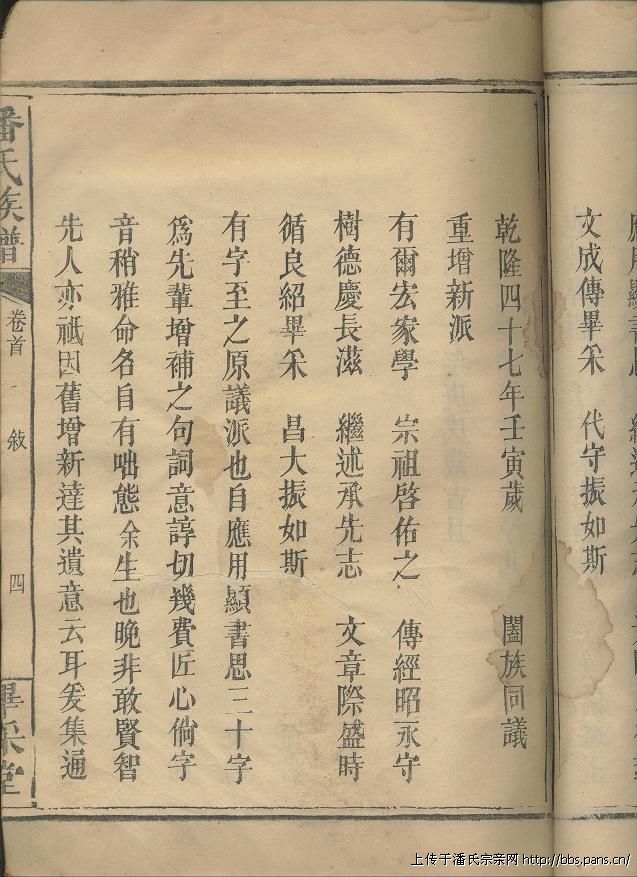 文成傳畢罙　代守振如斯
乾隆四十七年壬寅歲　闔族同議
重增新派
有爾宏家學　宗祖啓佑之　傳經昭永守
樹德慶長滋　繼述承先志　文章際盛時
循良紹畢罙　昌大振如斯
有字至之原議派也自應用顯書思三十字
爲先輩增補之句詞意諄切幾費匠心倘字
音稍雅命名自有咄態余生也晚非敢賢智
先人亦祇因舊增新達其遺意云耳爰集通
潘氏族譜
卷首
敍
四
畢罙堂
上传于潘氏宗亲网 http://bbs.pans.cn/